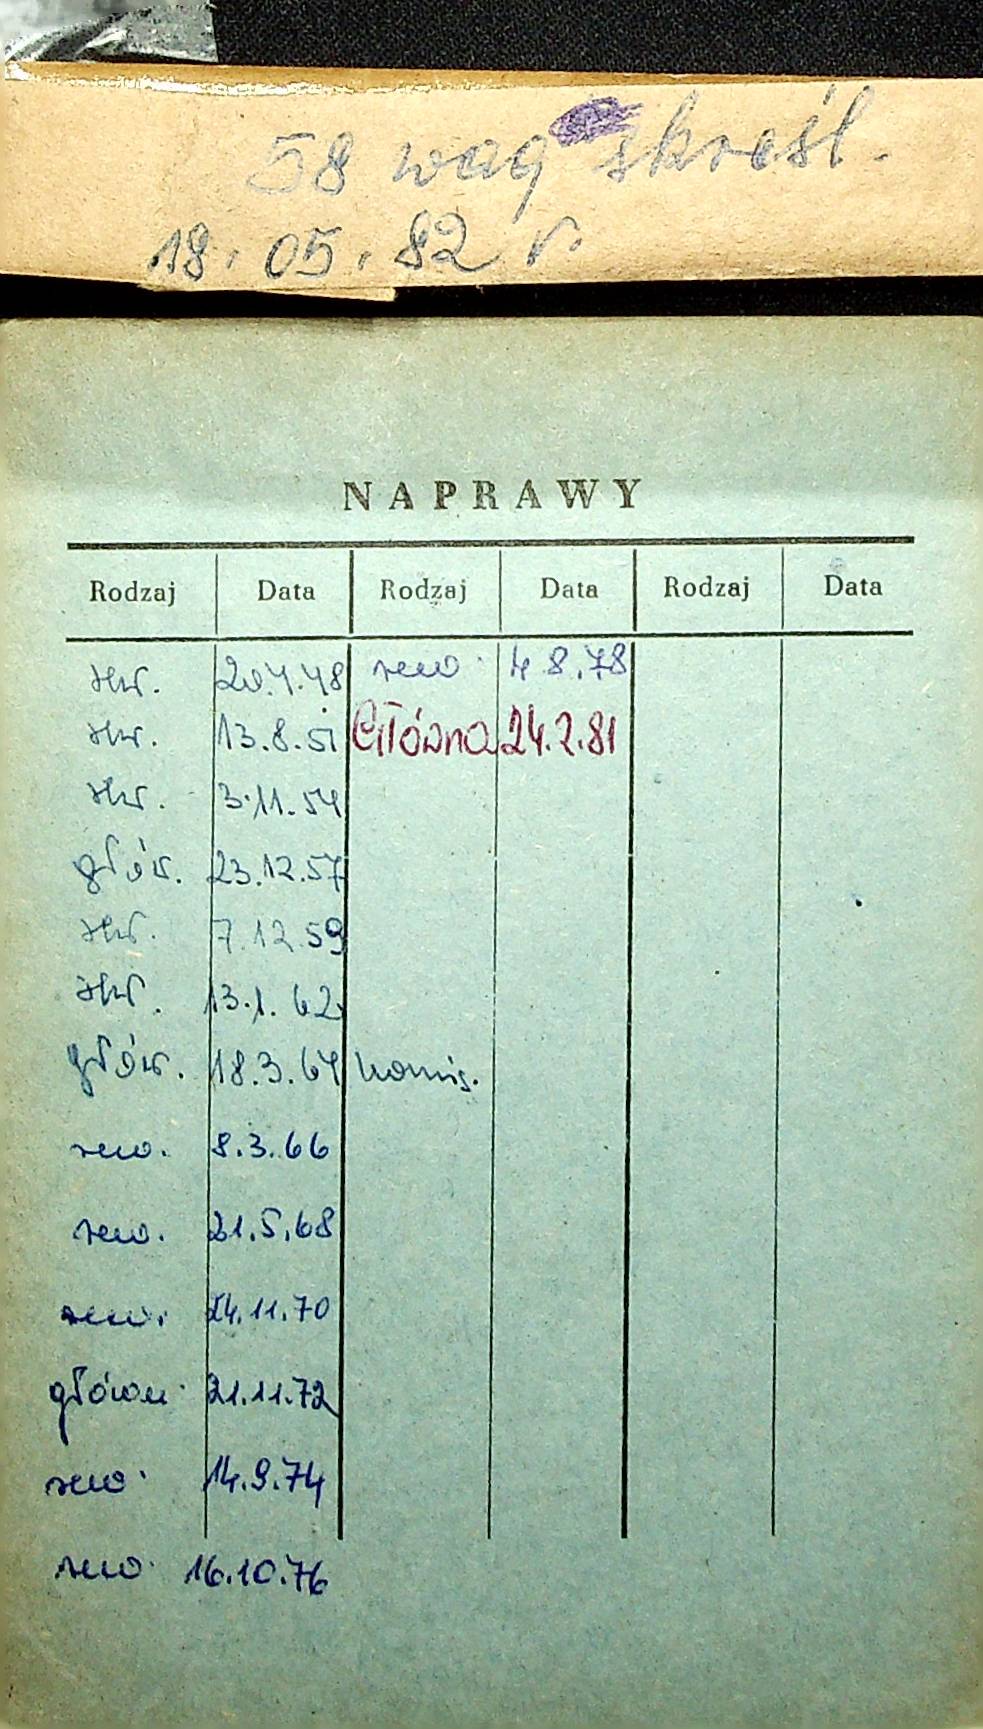 58 wag skreśl.
18.05.82 r.
NAPRAWY
Rodzaj Data Rodzaj Data Rodzaj Data
20.4.48 rew. 4.8.78
13.8.51 Główna 24.2.81
3.11.54
głów. 23.12.57
7.12.59
13.1.62
głów. 18.3.64 komis.
rew. 8.3.66
rew. 21.5.68
rew. 24.11.70
główn. 21.11.72
rew. 14.9.74
rew. 16.10.76